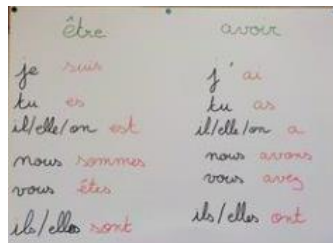 être
je suis
tu es
il/elle/on est
nous sommes
vous êtes
ils/elles sont
avoir
j'ai
tu as
il/elle/on a
nous avons
vous avez
ils/elles ont